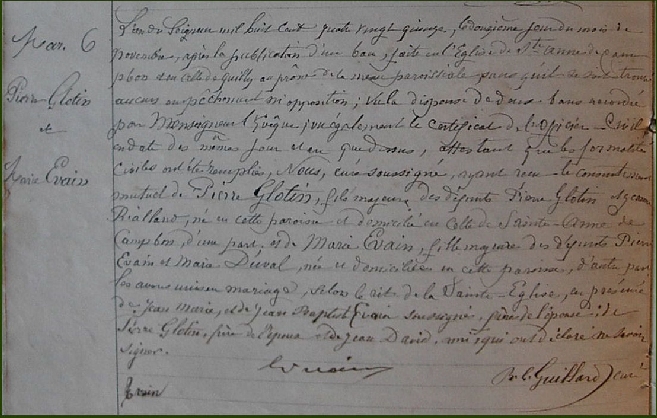 Mar. 6
Pierre Glotin
et
Marie Evain
L'an du Seigneur mil huit cent quatre vingt quinze, le douzième jour du mois de
novembre, après la publication d'un ban, faite en l'Eglise de Ste anne de Cam
pbon et en celle de Quilly au prône de la messe paroissiale sans qu'il se soit trouvé
aucun empêchement ni opposition; vu la dispense de deux bans accordée
par Monseigneur l'Evêque; vu également le certificat de l'officier Civil
en date des mêmes jour et an que dessus, attestant que les formalités
civiles ont été remplies, Nous, curé soussigné, ayant reçu le consentement
mutuel de Pierre Glotin, fils majeur des défunts Pierre Glotin et Jeanne
Rialland, né en cette paroisse et domicilié en celle de Sainte-Anne de
Campbon, d'une part, et de Marie Evain, fille majeure des défunts Pierre
Evain et Marie Duval, née et domiciliée en cette paroisse, d'autre part
les avons unis en mariage, selon le rit de la Sainte-Eglise, en présence
de Jean Marie, et de Jean Baptiste Evain soussignés, frères de l'épouse, de
Pierre Glotin, frère de l'époux et de Jean David, qui ont déclaré ne savoir
signer.
Evain
P. C. Guillard curé
Evain